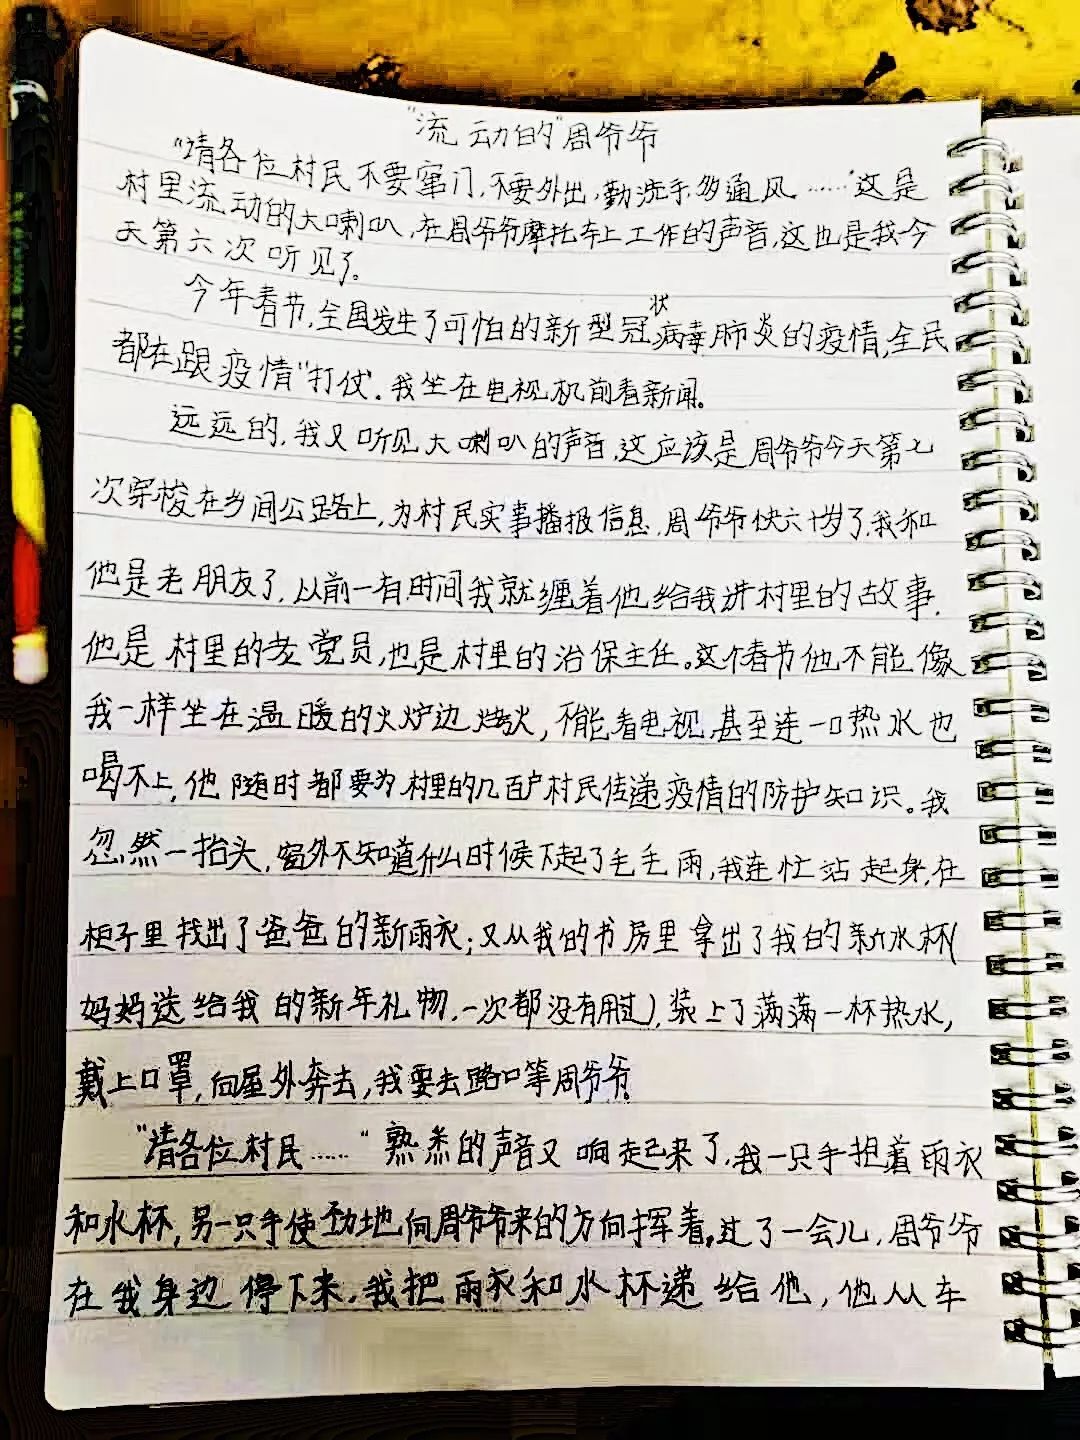 “流动的”周爷爷
“请各位村民不要窜门,不要外出,勤洗手,多通风……”这是
村里流动的大喇叭,在周爷爷摩托车上工作的声音,这也是我今
天第六次听见了。
今年春节,全国发生了可怕的新型冠状病毒肺炎的疫情,全民
都在跟疫情“打仗”。我坐在电视机前看新闻。
远远的,我又听见大喇叭的声音,这应该是周爷爷今天第七
次穿梭在乡间公路上,为村民实事播报信息,周爷爷快六十岁了,我和
他是老朋友了,以前一有时间我就缠着他给我讲村里的故事.
他是村里的老党员,也是村里的治保主任。这个春节他不能像
我一样坐在温暖的火炉边烤火,不能看电视,甚至连一口热水也
喝不上,他随时都要为村里的几百户村民传递疫情的防护知识。我
忽然一抬头,窗外不知道什么时候下起了毛毛雨,我连忙站起身,在
柜子里找出了爸爸的新雨衣;又从我的书房里拿出了我的新水杯(
妈妈送给我的新年礼物,一次都没有用过),装上了满满一杯热水,
戴上口罩,向屋外奔去,我要去路口等周爷爷。
“请各位村民……“熟悉的声音又响起来了,我一只手抱着雨衣
和水杯,另一只手使劲地向周爷爷来的方向挥着,过了一会儿,周爷爷
在我身边停下来,我把雨衣和水杯递给他,他从车